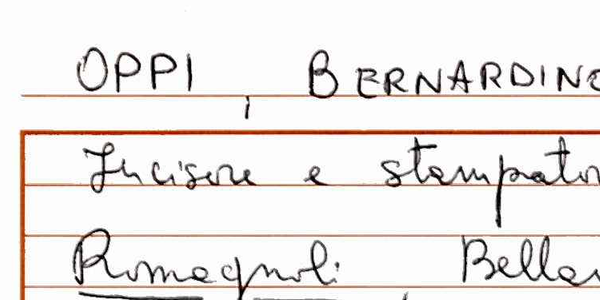 OPPI, BERNARDINO
Incisore e stampator
Romagnoli Bellar